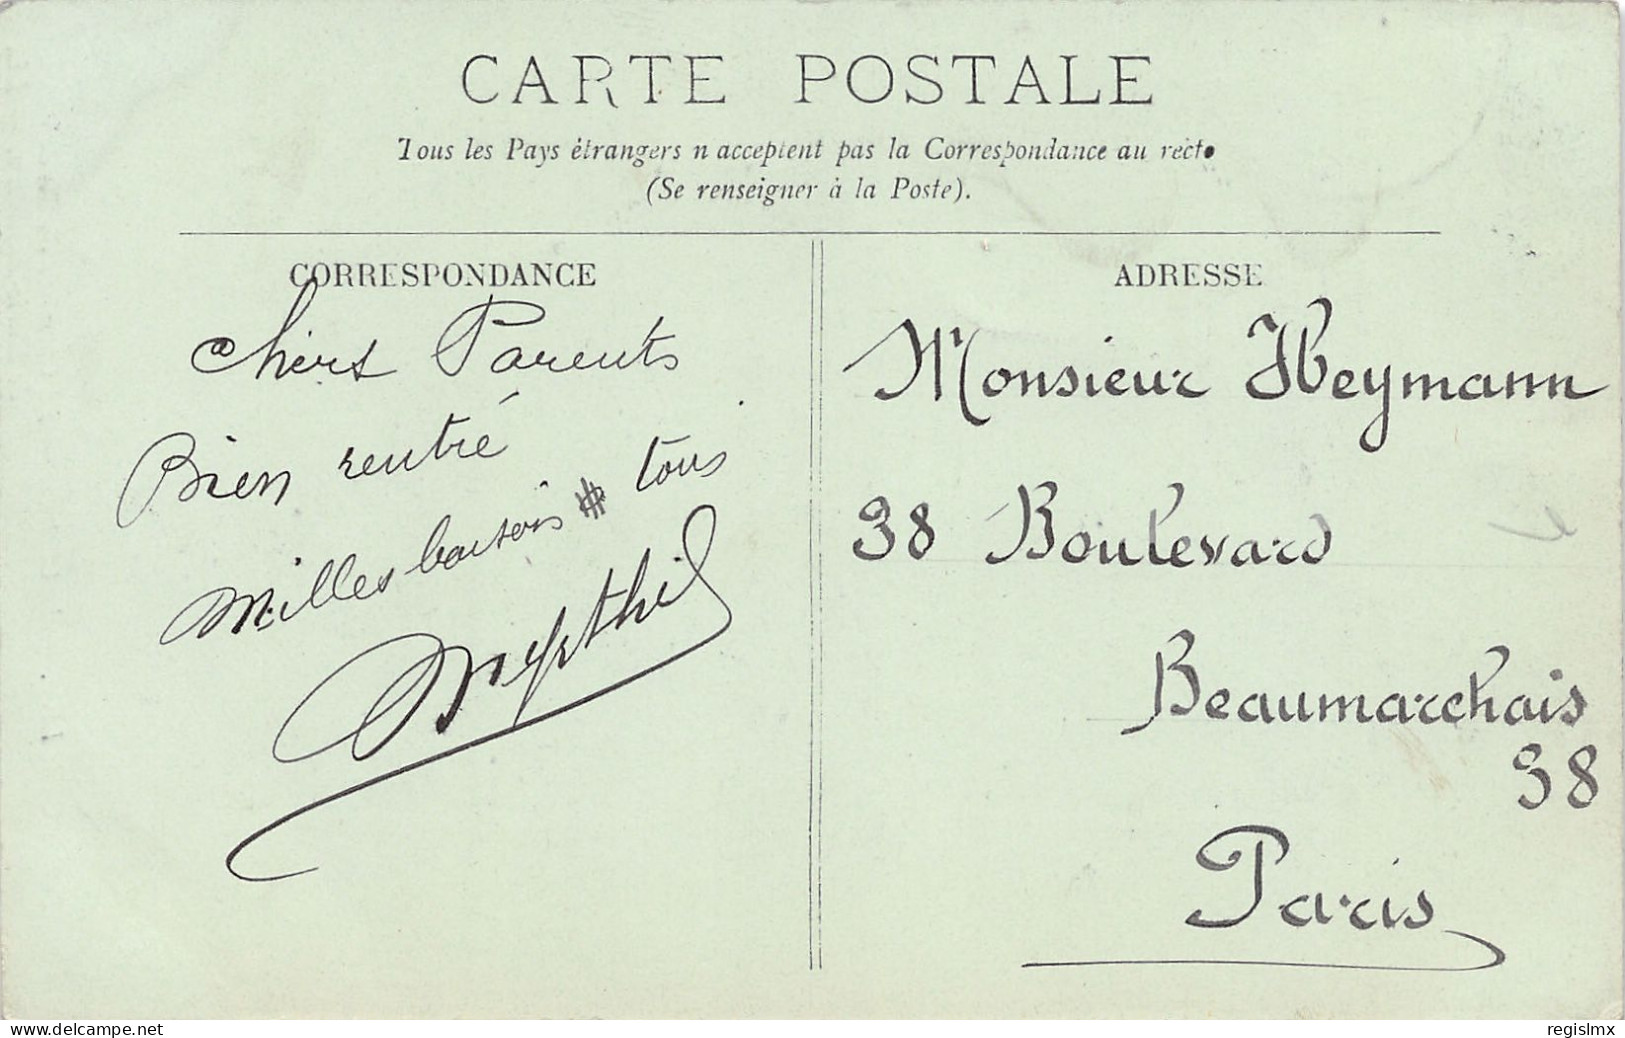 CARTE POSTALE
Tous les Pays étrangers n'acceptent pas la Correspondance au recto
(Se renseigner à la Poste).
CORRESPONDANCE
Chers Parents
Bien rentré
Milles baisers tous
ADRESSE
Monsieur Heymann
38 Boulevard
Beaumarchais
38
Paris
www.delcampe.net
regislmx